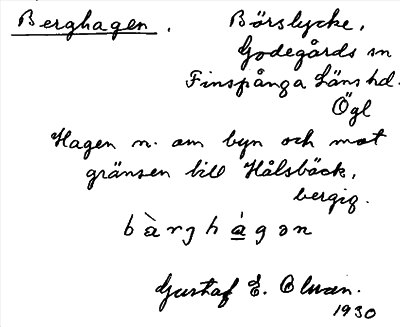 Berghagen. Börslycke,
Godegårds sn
Finspånga Länshd.
Ögl
Hagen n. om byn och mot
gränsen till Hålsbäck,
bergig.
bàrghágən
Gustaf E. Olman.
1930